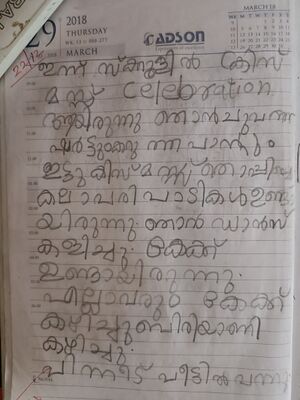 29
2018
THURSDAY
WK 13 • 088-277
MARCH
ADSON
MARCH 18
ഇന്ന് സ്ക്കൂളിൽ ക്രിസ്
മസ്സ് Celebration
ആയിരുന്നു ഞാൻ ചുവന്ന
ഷർട്ടും കറുത്ത പാന്റും
ഇട്ടു ക്രിസ്മസ്സ് തൊപ്പിയും
കലാപരിപാടികൾ ഉണ്ടാ
യിരുന്നു. ഞാൻ ഡാൻസ്
കളിച്ചു. കേക്ക്
ഉണ്ടായിരുന്നു.
എല്ലാവരും കേക്ക്
കഴിച്ചു ബിരിയാണി
കഴിച്ചു.
പിന്നീട് വീട്ടിൽ വന്നു